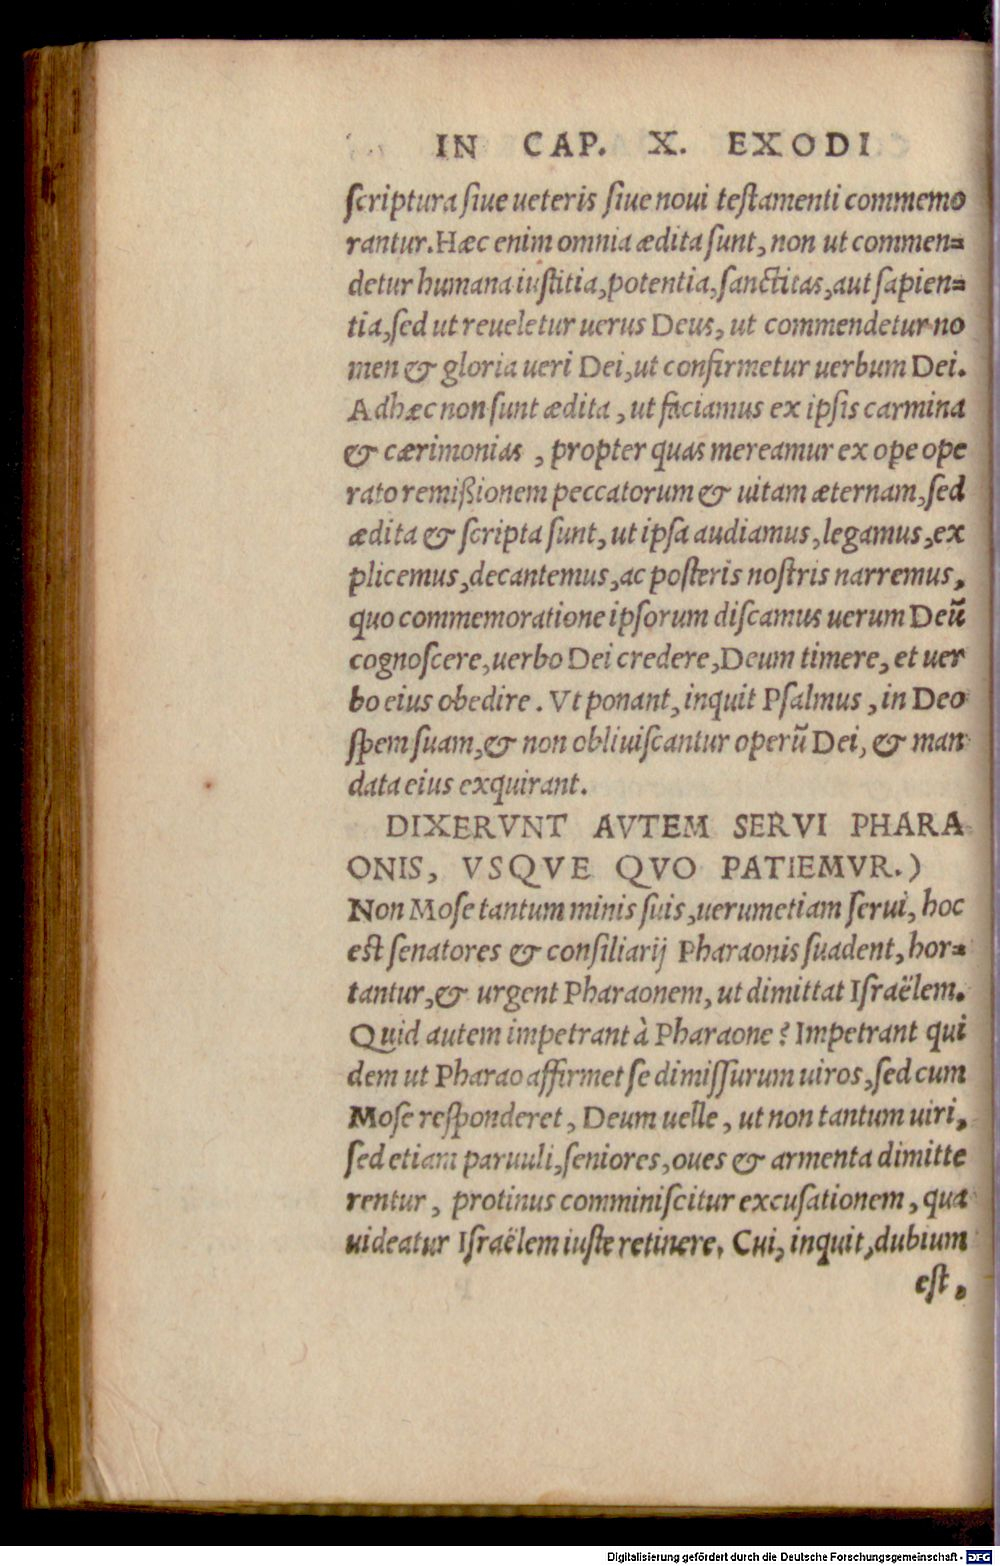 IN CAP. X. EXODI
ſcriptura ſiue ueteris ſiue noui teſtamenti commemo
rantur. Hæc enim omnia ædita ſunt, non ut commen=
detur humana iuſtitia, potentia, ſanctitas, aut ſapien=
tia, ſed ut reueletur uerus Deus, ut commendetur no
men & gloria ueri Dei, ut confirmetur uerbum Dei.
Adhæc non ſunt ædita, ut faciamus ex ipſis carmina
& cærimonias, propter quas mereamur ex ope ope
rato remißionem peccatorum & uitam æternam, ſed
ædita & ſcripta ſunt, ut ipſa audiamus, legamus, ex
plicemus, decantemus, ac poſteris noſtris narremus,
quo commemoratione ipſorum diſcamus uerum Deũ
cognoſcere, uerbo Dei credere, Deum timere, et uer
bo eius obedire. Vt ponant, inquit Pſalmus, in Deo
ſpem ſuam, & non obliuiſcantur operũ Dei, & man
data eius exquirant.
DIXERVNT AVTEM SERVI PHARA
ONIS, VSQVE QVO PATIEMVR.)
Non Moſe tantum minis ſuis, uerumetiam ſerui, hoc
eſt ſenatores & conſiliarij Pharaonis ſuadent, hor=
tantur, & urgent Pharaonem, ut dimittat Iſraëlem.
Quid autem impetrant à Pharaone? Impetrant qui
dem ut Pharao affirmet ſe dimiſſurum uiros, ſed cum
Moſe reſponderet, Deum uelle, ut non tantum uiri,
ſed etiam paruuli, ſeniores, oues & armenta dimitte
rentur, protinus comminiſcitur excuſationem, qua
uideatur Iſraëlem iuſte retinere. Cui, inquit, dubium
eſt,
Digitalisierung gefördert durch die Deutsche Forschungsgemeinschaft - DFG